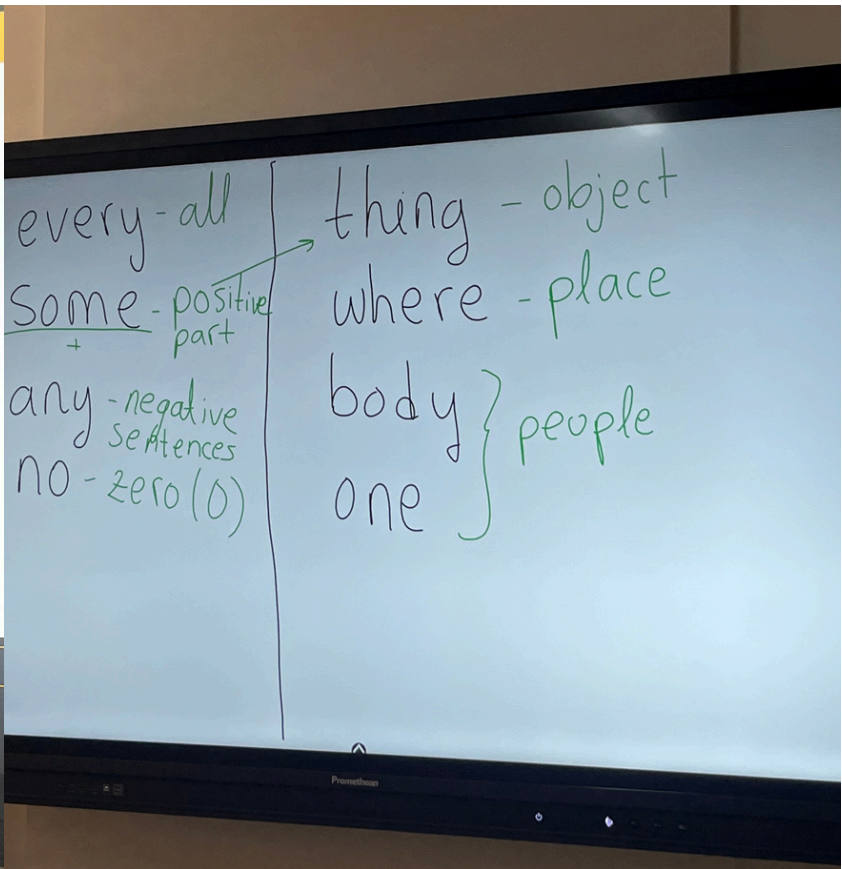 every - all
some - positive
+
part
any - negative
sentences
no - zero (0)
thing - object
where - place
body
one
people
Promethean